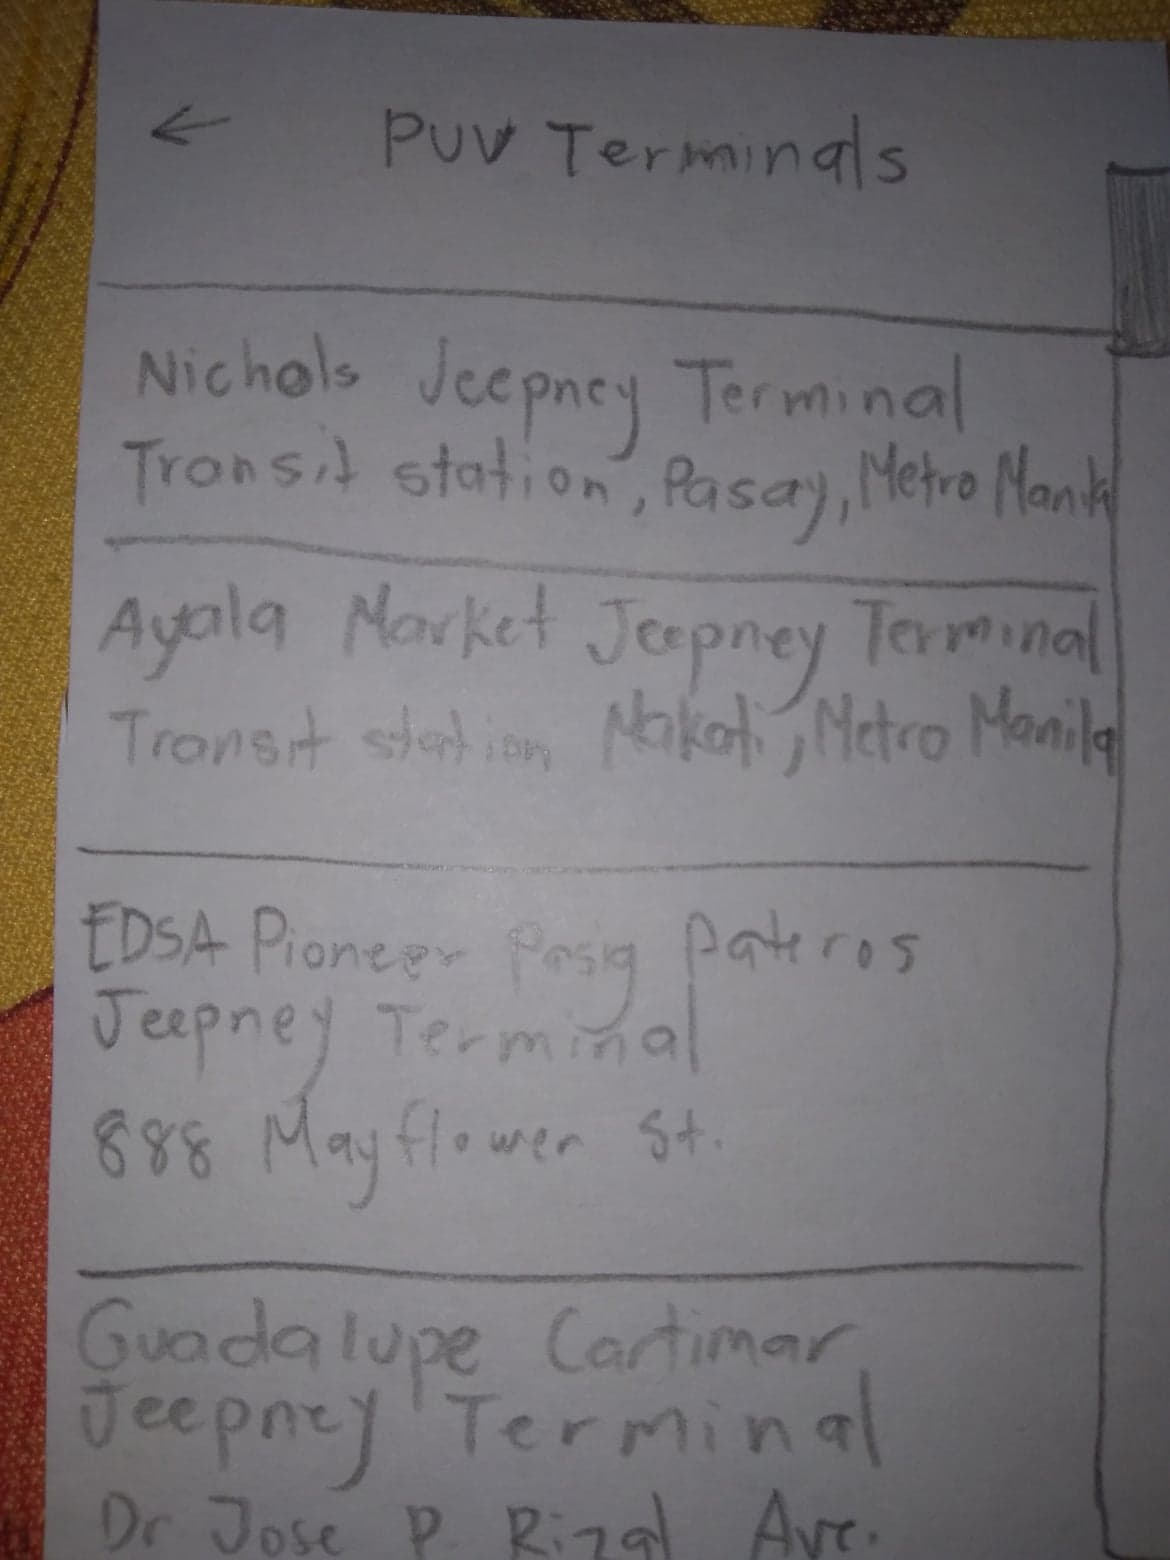 ← PUV Terminals
Nichols Jeepney Terminal
Transit station, Pasay, Metro Manila
Ayala Market Jeepney Terminal
Transit station Makati, Metro Manila
EDSA Pioneer Pasig Pateros
Jeepney Terminal
888 Mayflower St.
Guadalupe Cartimar
Jeepney Terminal
Dr Jose P. Rizal Ave.